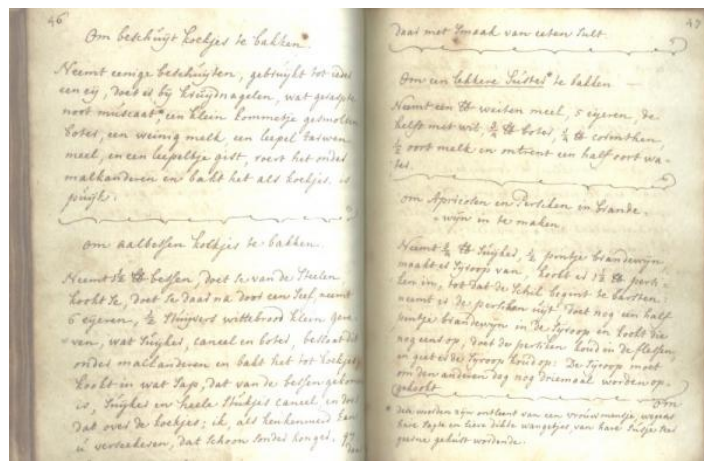 46
Om beschuijt koekjes te bakken.
Neemt eenige beschuijten, gebruijkt tot ieder
een eij, doed er bij kruijdnagelen, wat geraspte
noot muscaat, een klein kommetje gesmolte
boter, een weinig melk een leepel tarwen
meel, en een leepeltje gist, roert het onder
malkanderen en bakt het als koekjes. is
puijk.
om aalbessen koekjes te bakken.
Neemt 1½ ℔ bessen, doet se van de steelen
kookt se, doet se daar na door een seef, neemt
6 eijeren, ½ stuijvers wittebrood klein gevre-
ven, wat suijker, caneel en boter,
onder malkanderen en bakt het tot koekjes,
kookt in wat sap, dat van de bessen gekomen
is, suijker en heele stukjes caneel, en doet
dat over de koekjes; ik, als keukenmeid kan
u verseekeren, dat schoon sonder honger, gij
47
daar met smaak van eeten sult.
Om een lekkere Suster* te bakken
Neemt een ℔ weiten meel, 5 eijeren, de
helft met wit, ¾ ℔ boter, ¼ ℔ corinthen,
½ oort melk en ontrent een half oort wa-
ter.
om Apricosen en Persiken in brande-
wijn in te maken
Neemt ¾ ℔ suijker, ½ pintje brandewijn,
maakt er syroop van, kookt er 1½ ℔ persi-
ken in, tot dat de schil begint te barsten:
neemt er de persiken uijt, doet nog een half
pintje brandewyn in de syroop en kookt die
nog eens op, doet de persiken koud in de flessen,
en giet er de syroop koud op: De syroop moet
om den anderen dag nog driemaal worden op-
gekookt.
Om
* dese worden zijn ontleent van een vrouwmensje, wegens
hare sagte en lieve dikke wangetjes van hare susje seer
gaerne gekust wordende.